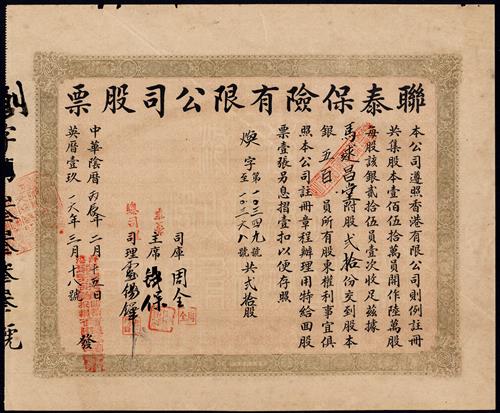 聯泰保險有限公司股票
本公司遵照香港有限公司則例註冊
共集股本壹佰伍拾萬員開作陸萬股
每股該銀貳拾伍員壹次收足茲據
昌堂附股弍拾份交到股本
銀五員所有股東權利事宜俱
照本公司註冊章程辦理用特給回股
票壹張另息摺壹扣以便存照
煥字第一〇三四九號至一〇三六八號共弍拾股
司庫周全
主席
司理
中華陰曆丙辰年二月十五日發
英曆壹玖一六年三月十八號